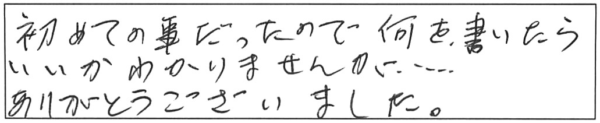 初めての事だったので何を書いたら
いいかわかりませんが……
ありがとうございました。